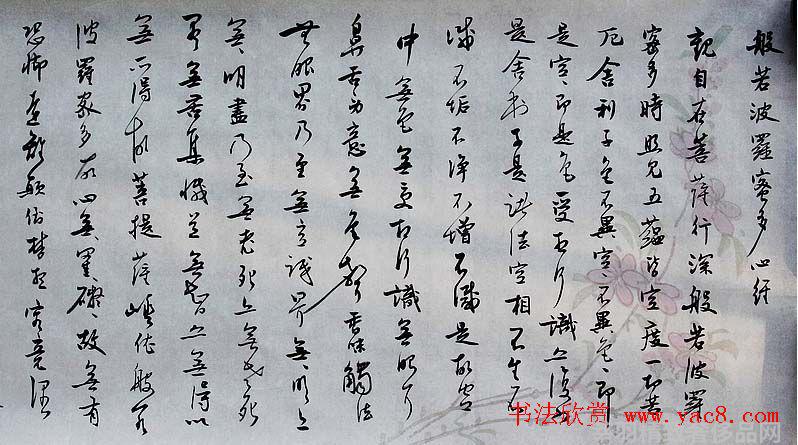 般若波羅蜜多心経
觀自在菩薩行深般若波羅
蜜多時照見五蘊皆空度一切苦
厄舍利子色不異空、不異色、即
是空、即是色受想行識亦復如
是舍利子是諸法空相不生不
滅不垢不淨不增不減是故空
中無色無受想行識無眼耳
鼻舌身意無色聲香味觸法
無眼界乃至無意識界無、明亦
無、明盡乃至無老死亦無老死
盡無苦集滅道無智亦無得以
無所得故菩提薩埵依般若
波羅蜜多故心無罣礙、故無有
恐怖遠離顛倒夢想究竟涅
书法欣赏 www.yac8.com